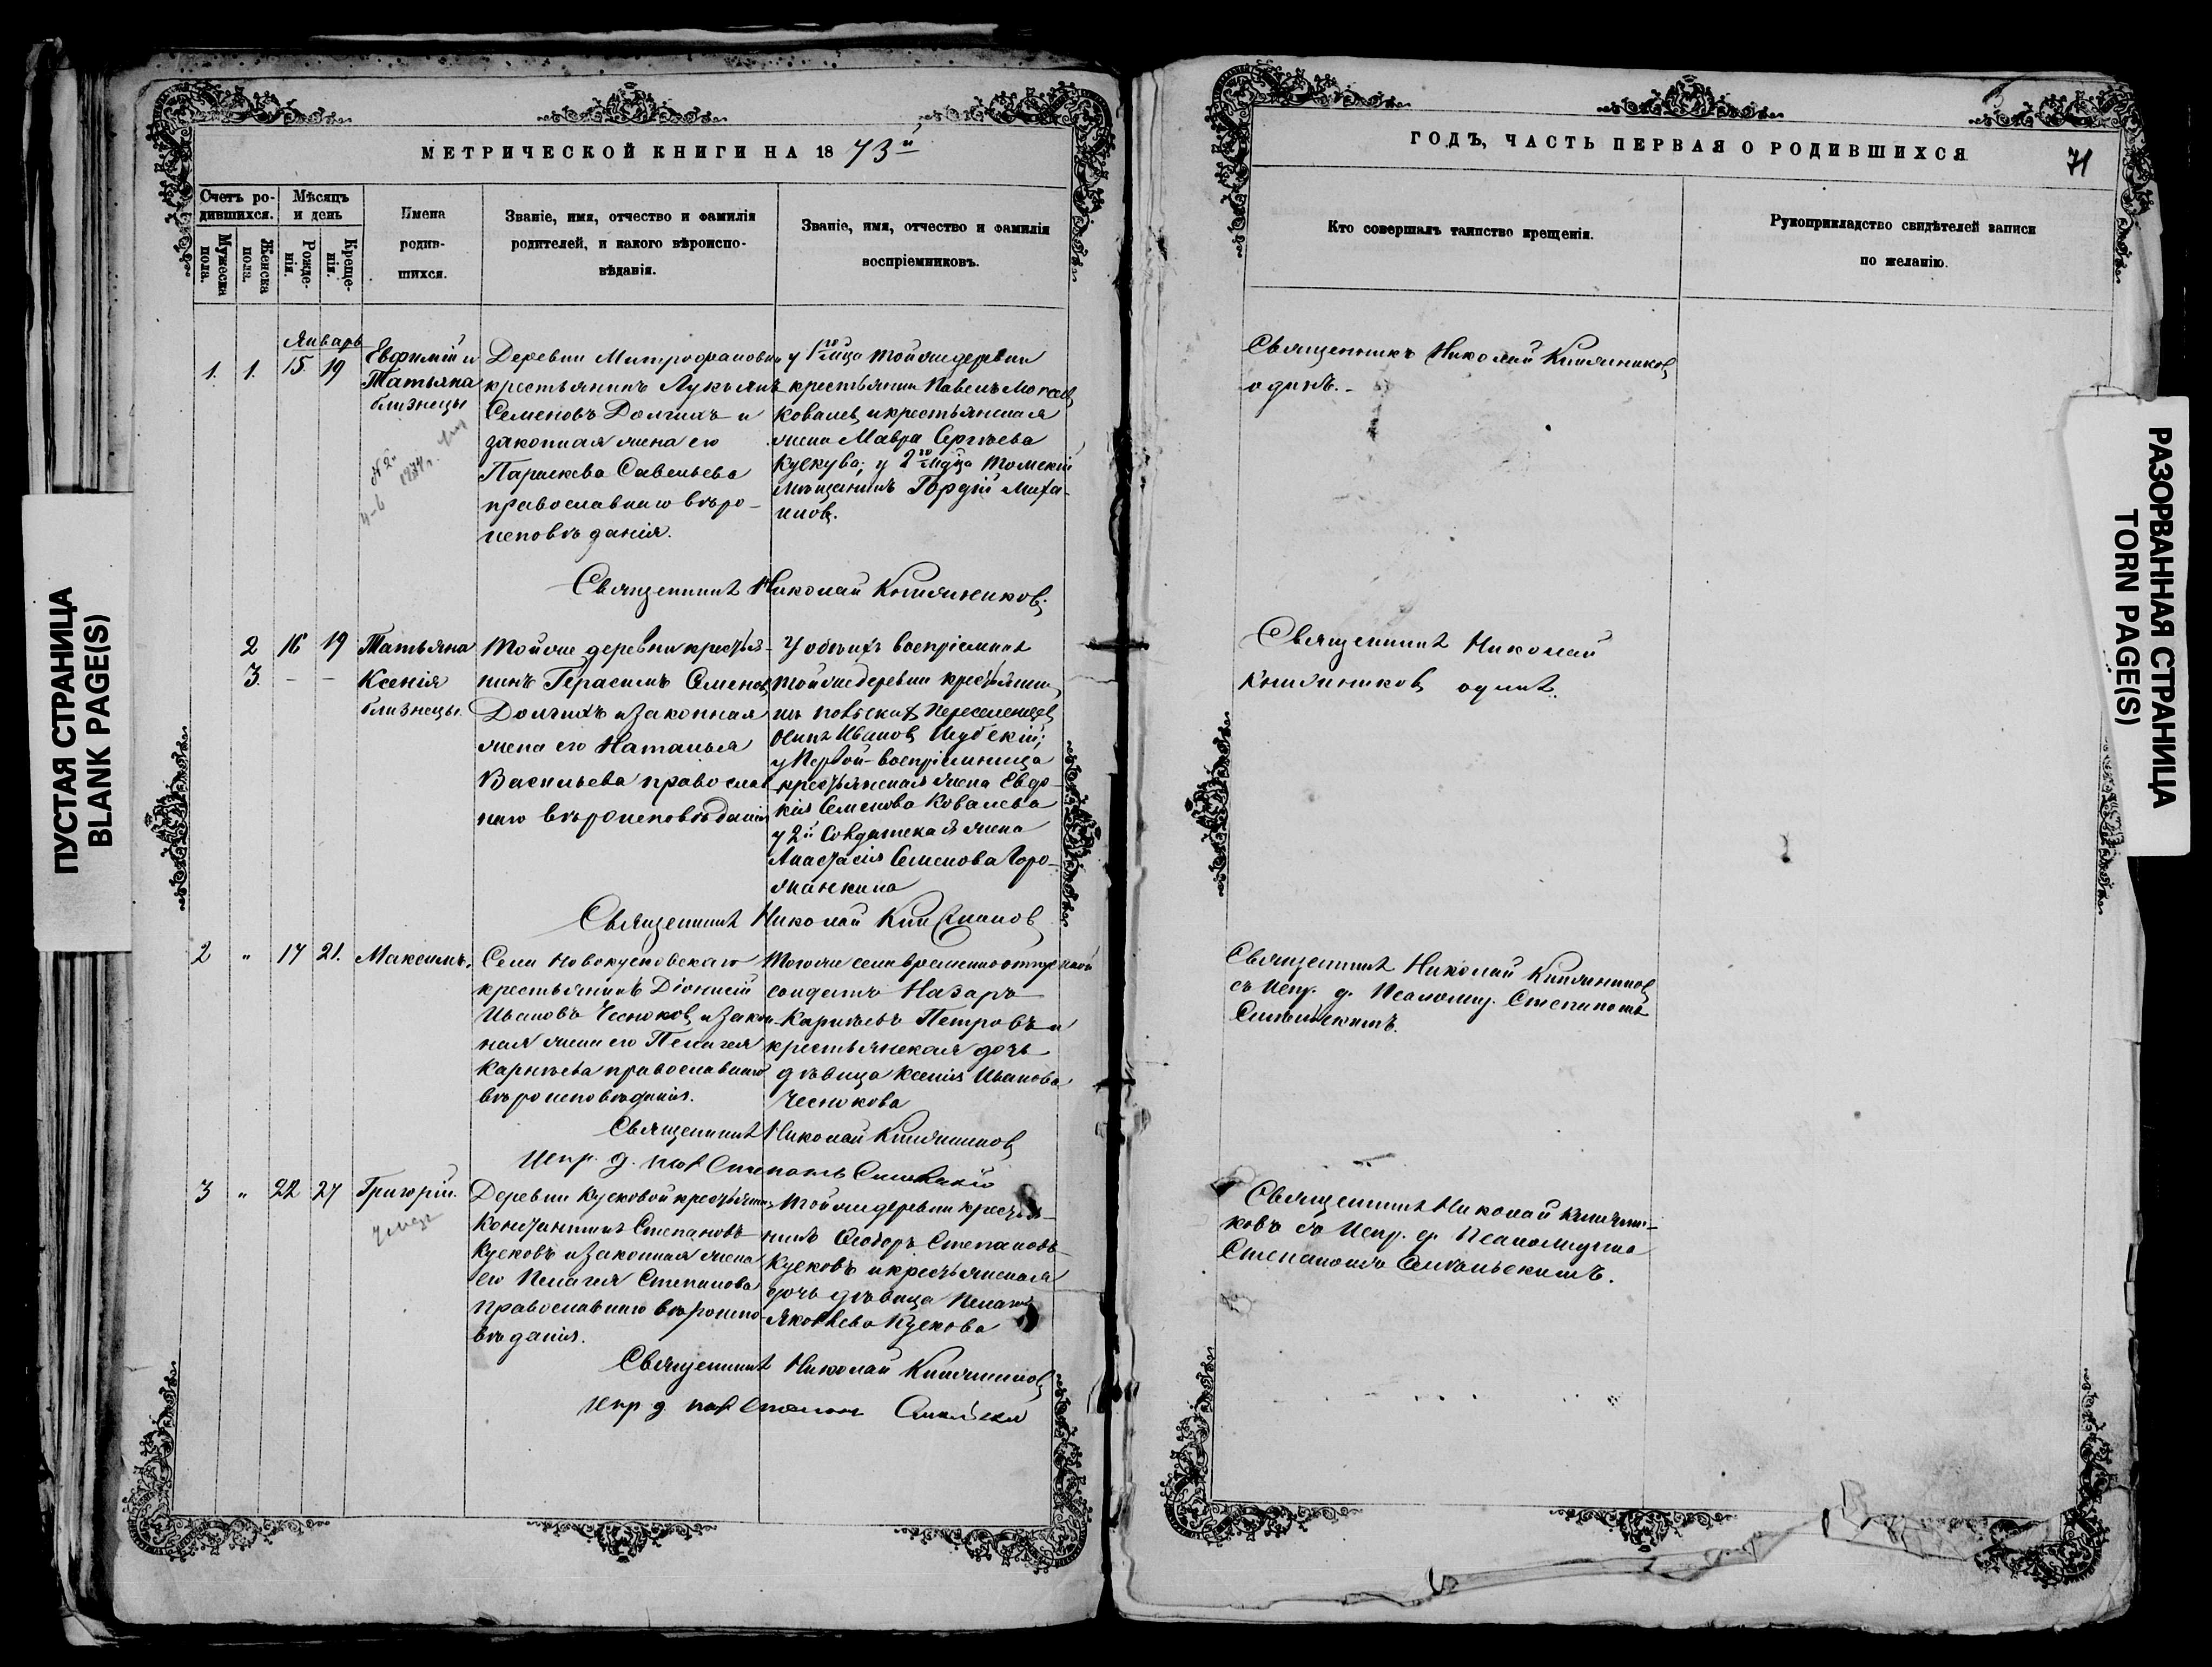 МЕТРИЧЕСКОЙ КНИГИ НА 1873й
Счетъ ро-
дившихся.
Мужеска
пола.
Женска
пола.
Мѣсяцъ
и день
Рожде-
нія.
Креще-
нія.
Имена
родив-
шихся.
Званіе, имя, отчество и фамилія
родителей, и какого вѣроиспо-
вѣданія.
Званіе, имя, отчество и фамилія
воспріемниковъ.
Январь
1. 1. 15 19
Евфимій и
Татьяна
близнецы
Деревни Митрофановки
крестьянинъ Лукьянъ
Семеновъ Долгихъ и
законная жена его
Параскева Савельева
православнаго вѣро-
исповѣданія.
у 1го лица той же деревни
крестьянин Павелъ
Ковалев, и крестьянская
жена Мавра Сергѣева
Кускува; у 2го лица Томскій
мѣщанинъ Гордій Миха-
илов.
Священникъ Николай
2 16 19 Татьяна
3. - - Ксенія
близнецы.
Той же деревни крестья-
нинъ Герасимъ Семенов
Долгихъ и законная
жена его Наталья
Васильева православ-
наго вѣроисповѣданія
У обѣихъ воспріемник
той же деревни крестьянин
Осипъ Иванов
у Первой воспріемница
крестьянская жена Евдо-
кія Семенова Ковалева
у 2й Солдатская жена
Анастасія Семенова Горо-
жанкина
Священникъ Николай
2 " 17 21. Максимъ.
Села Новокусковскаго
крестьянинъ Діонисій
Ивановъ Чесноков, и закон-
ная жена его Пелагея
Карнѣева православнаго
вѣроисповѣданія.
Того же села временноотпускной
солдатъ Назаръ
Карнѣевъ Петровъ и
крестьянская дочь
дѣвица Ксенія Иванова
Чеснокова
Священникъ Николай
Испр. д. Степанъ
3 " 22 27 Григорій.
Деревни Кусковой крестьянинъ
Константинъ Степановъ
Кусковъ и законная жена
его Пелагея Степанова
православнаго вѣроиспо-
вѣданія.
Той же деревни крестья-
нинъ Ѳеодоръ Степановъ
Кусковъ и крестьянская
дочь дѣвица Пелагея
Яковлева Кускова
Священникъ Николай
Испр д
ГОДЪ, ЧАСТЬ ПЕРВАЯ О РОДИВШИХСЯ
71
Кто совершалъ таинство крещенія.
Рукоприкладство свидѣтелей записи
по желанію.
Священникъ Николай
одинъ.-
Священникъ Николай
одинъ.
Священникъ Николай
съ Испр. д. Псаломщ. Степаномъ
Священникъ Николай
ковъ съ Испр. д. Псаломщика
Степаномъ
ПУСТАЯ СТРАНИЦА
BLANK PAGE(S)
РАЗОРВАННАЯ СТРАНИЦА
TORN PAGE(S)